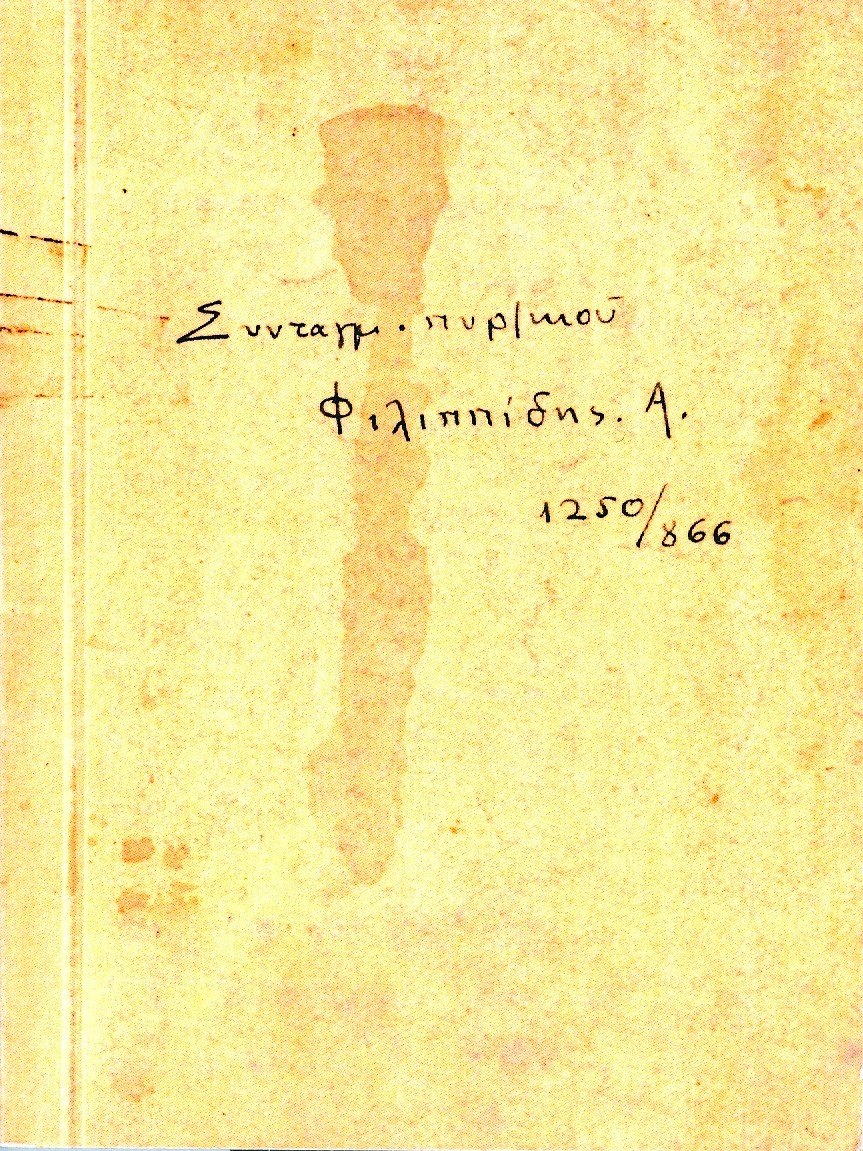 Συνταγμ. πυρ/κοῦ
Φιλιππίδης. Α.
1250/866